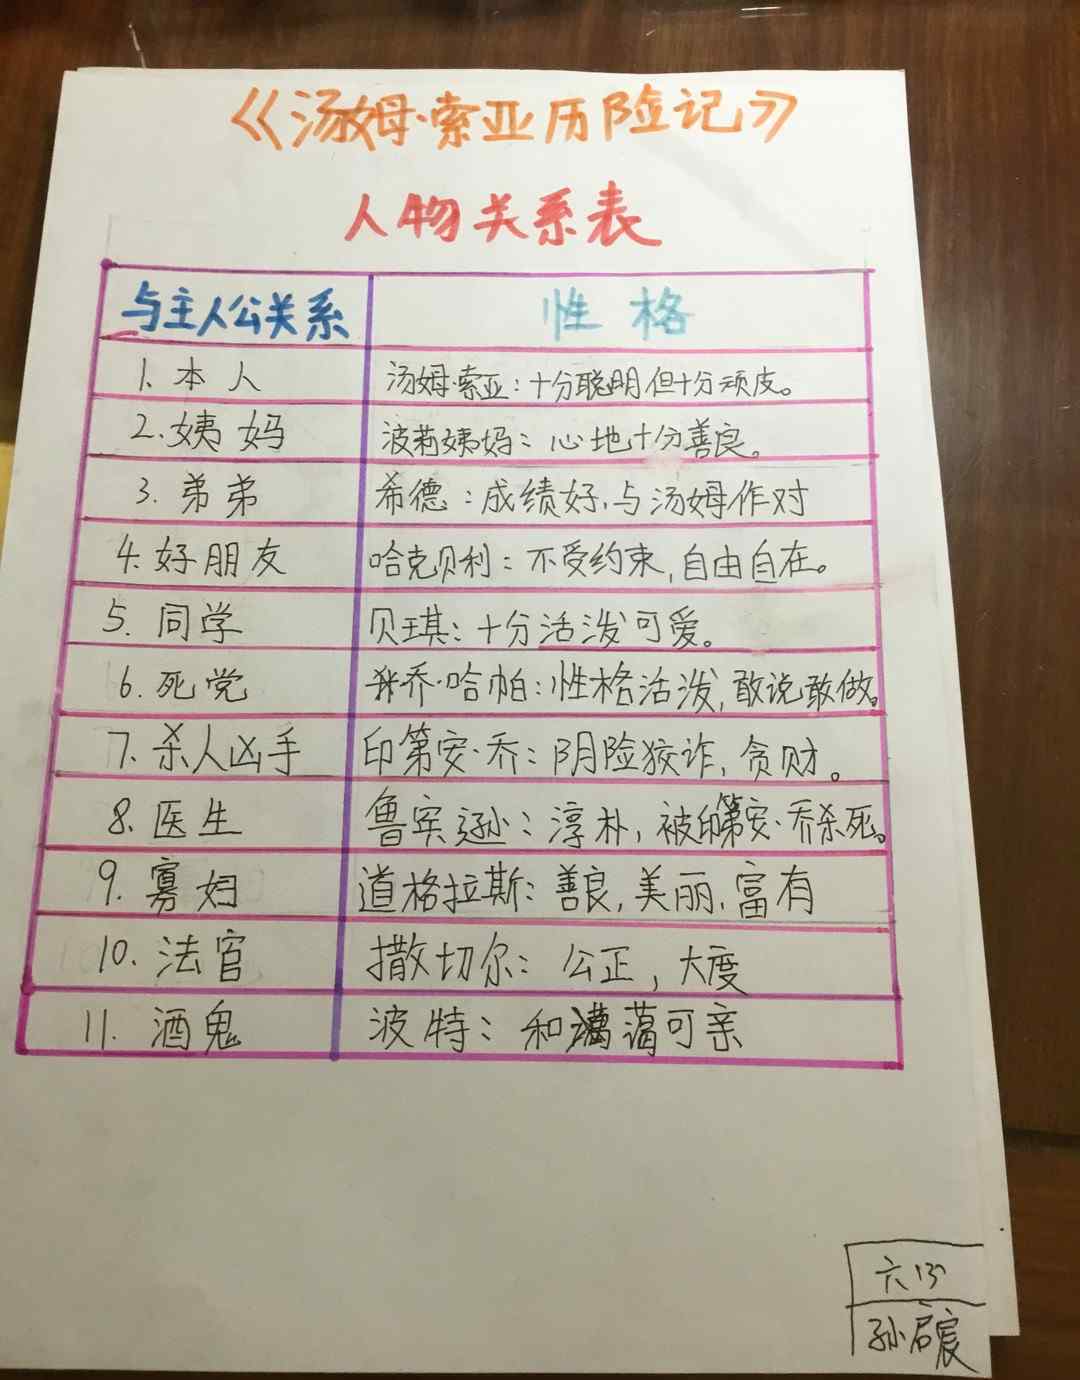 《汤姆·索亚历险记》
人物关系表
与主人公关系 性格
1. 本人 汤姆·索亚：十分聪明但十分顽皮。
2. 姨妈 波莉姨妈：心地十分善良。
3. 弟弟 希德：成绩好,与汤姆作对
4. 好朋友 哈克贝利：不受约束,自由自在。
5. 同学 贝琪：十分活泼可爱。
6. 死党 乔·哈帕：性格活泼,敢说敢做。
7. 杀人凶手 印第安·乔：阴险狡诈,贪财。
8. 医生 鲁宾逊：淳朴,被印第安·乔杀死。
9. 寡妇 道格拉斯：善良,美丽,富有
10. 法官 撒切尔：公正,大度
11. 酒鬼 波特：和蔼可亲
孙宸